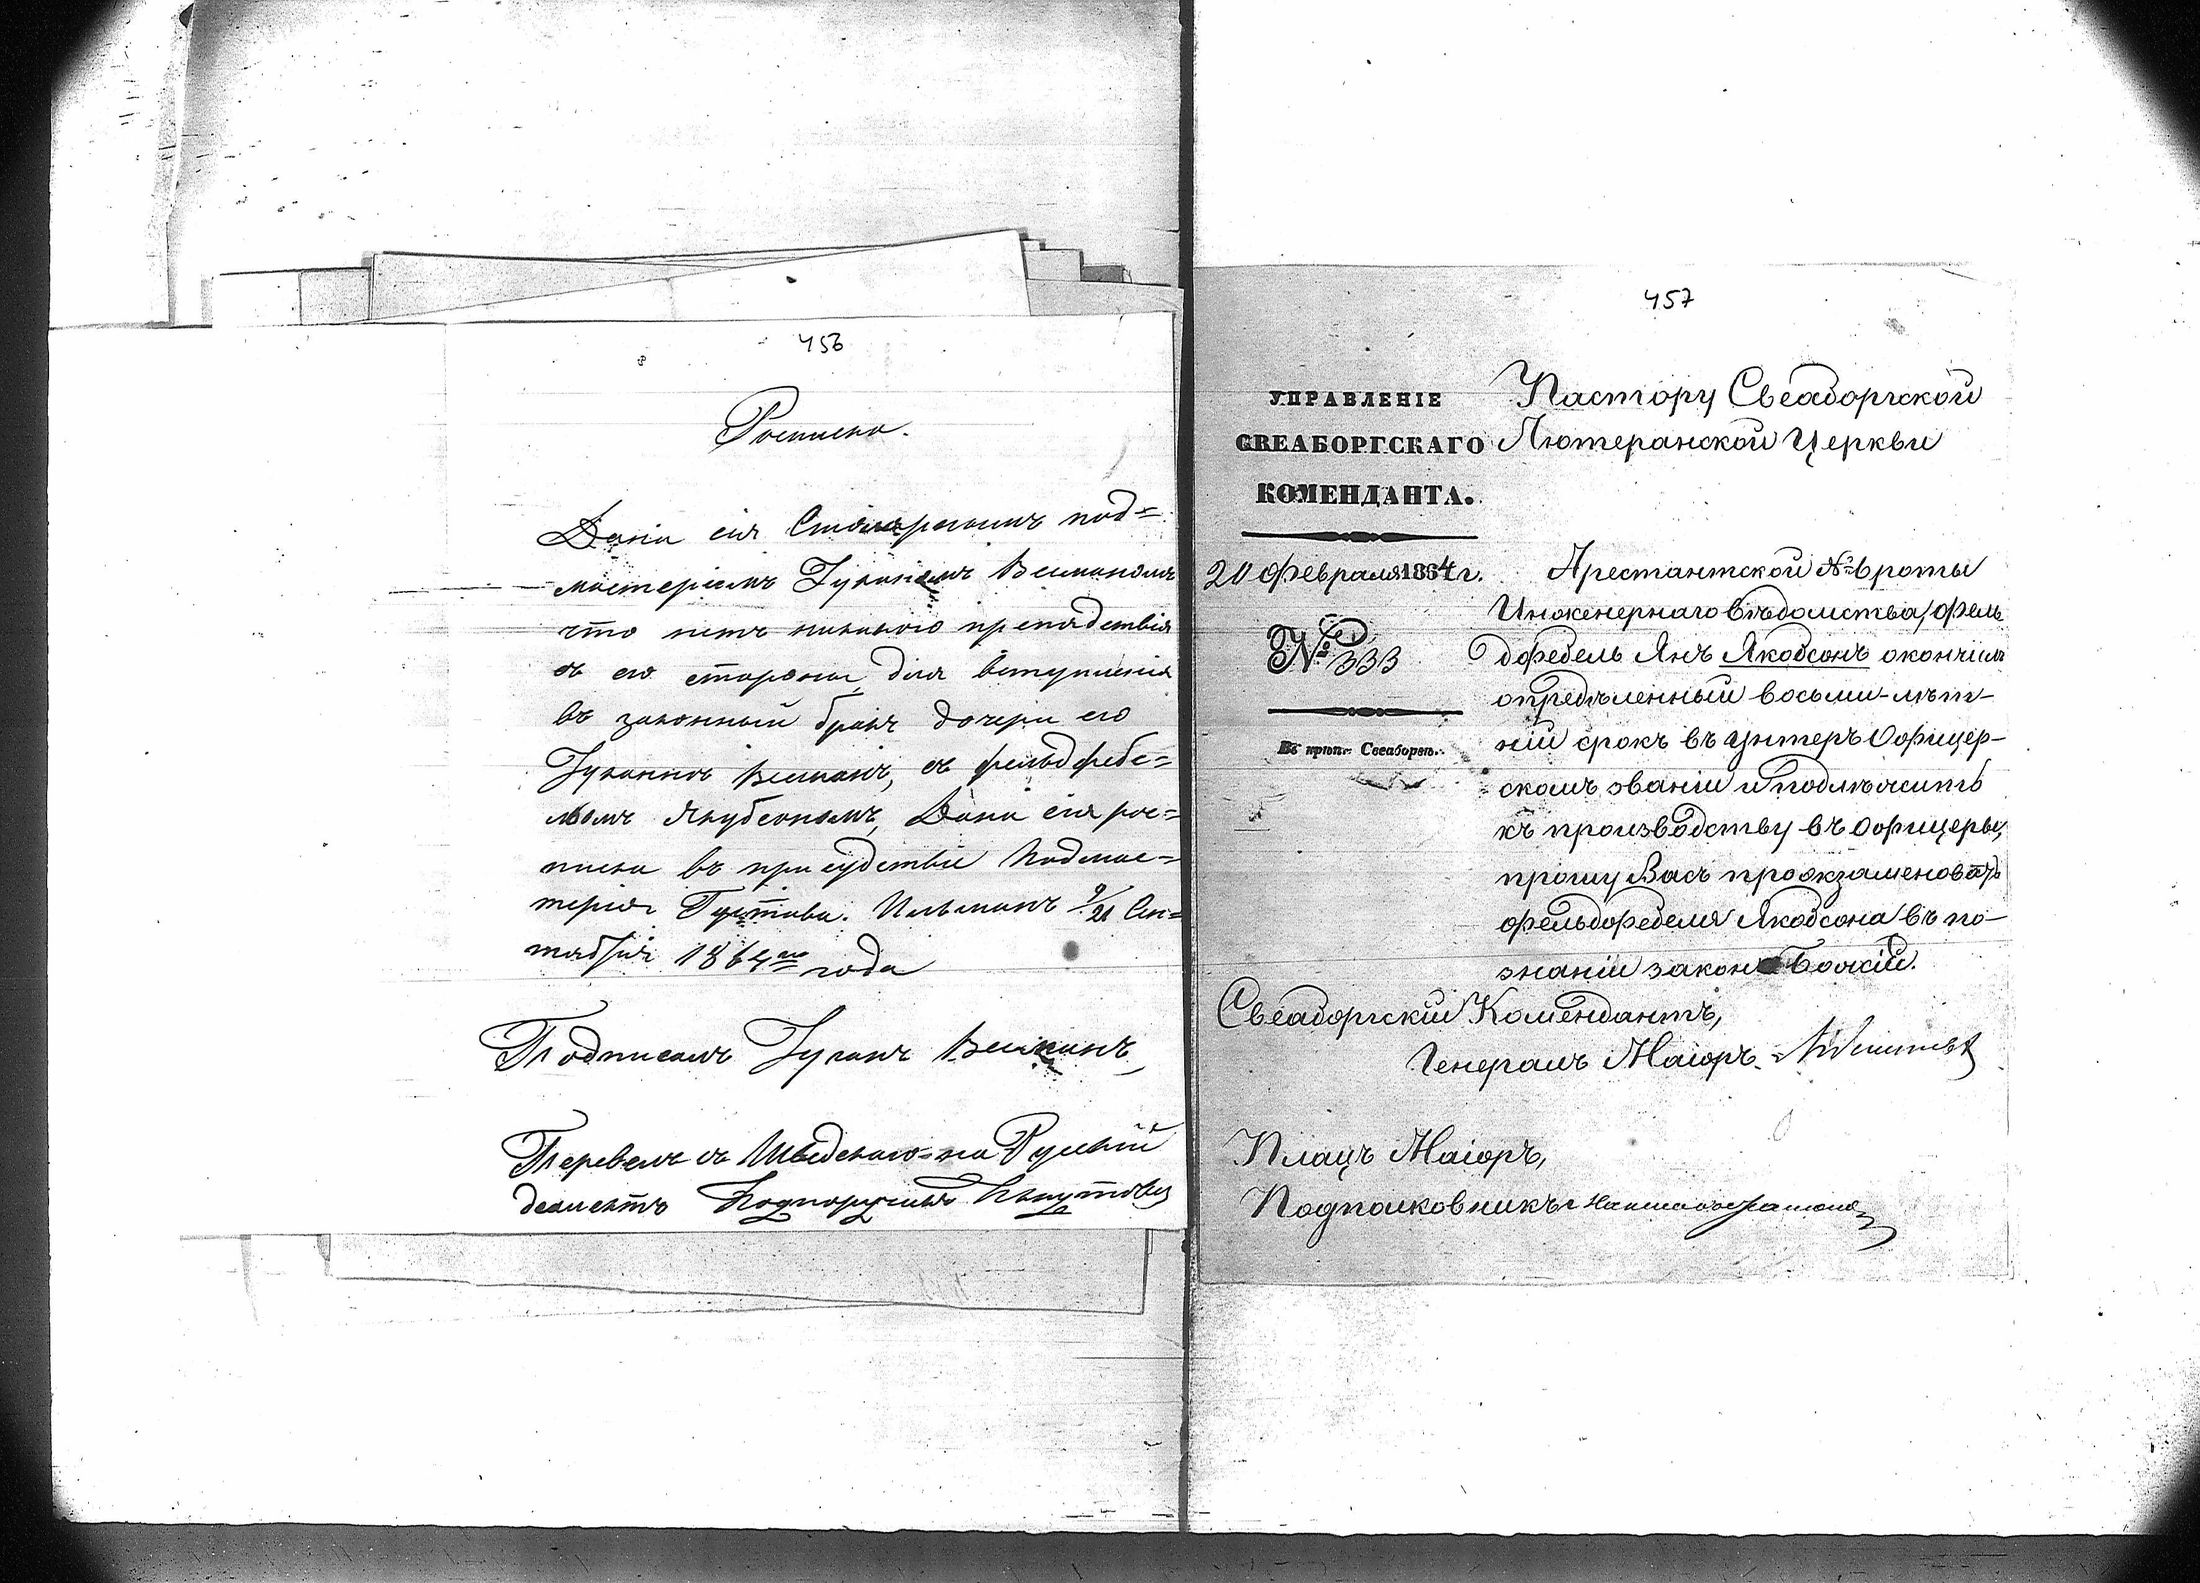 456
Росписка.
Дана сія Столярнымъ под=
мастеріемъ Іуганомъ
что нетъ никакого препядствія
съ его стороны для вступленія
въ законный бракъ дочери его
съ фельдфебе=
лемъ Якубсономъ, Дана сія рос=
писка въ присудствіе Подмас=
терія Густава 9/21 Сен=
тября 1864го года
Подписалъ Іуганъ
Перевелъ съ Шведскаго на Руский
Подпоручикъ
457
УПРАВЛЕНІЕ
СВЕАБОРГСКАГО
КОМЕНДАНТА.
20 Февраля 1864 г.
№ 333
Въ крѣп. Свеаборгѣ.
Пастору Свеаборгской
Лютеранской Церкви
Арестантской № роты
Инженернаго Вѣдомства, фель
дфебель Янъ Якобсонъ окончилъ
опредѣленный восьми-лѣт-
ній срокъ въ Унтеръ Офицер-
скомъ званіи и подлѣжитъ
къ производству въ Офицеры,
прошу Васъ проэкзаменовать
фельдфебеля Якобсона въ по-
знаніи закона Божій.
Свеаборгскій Комендантъ,
Генералъ Маіоръ
Плацъ Маіоръ,
Подполковникъ